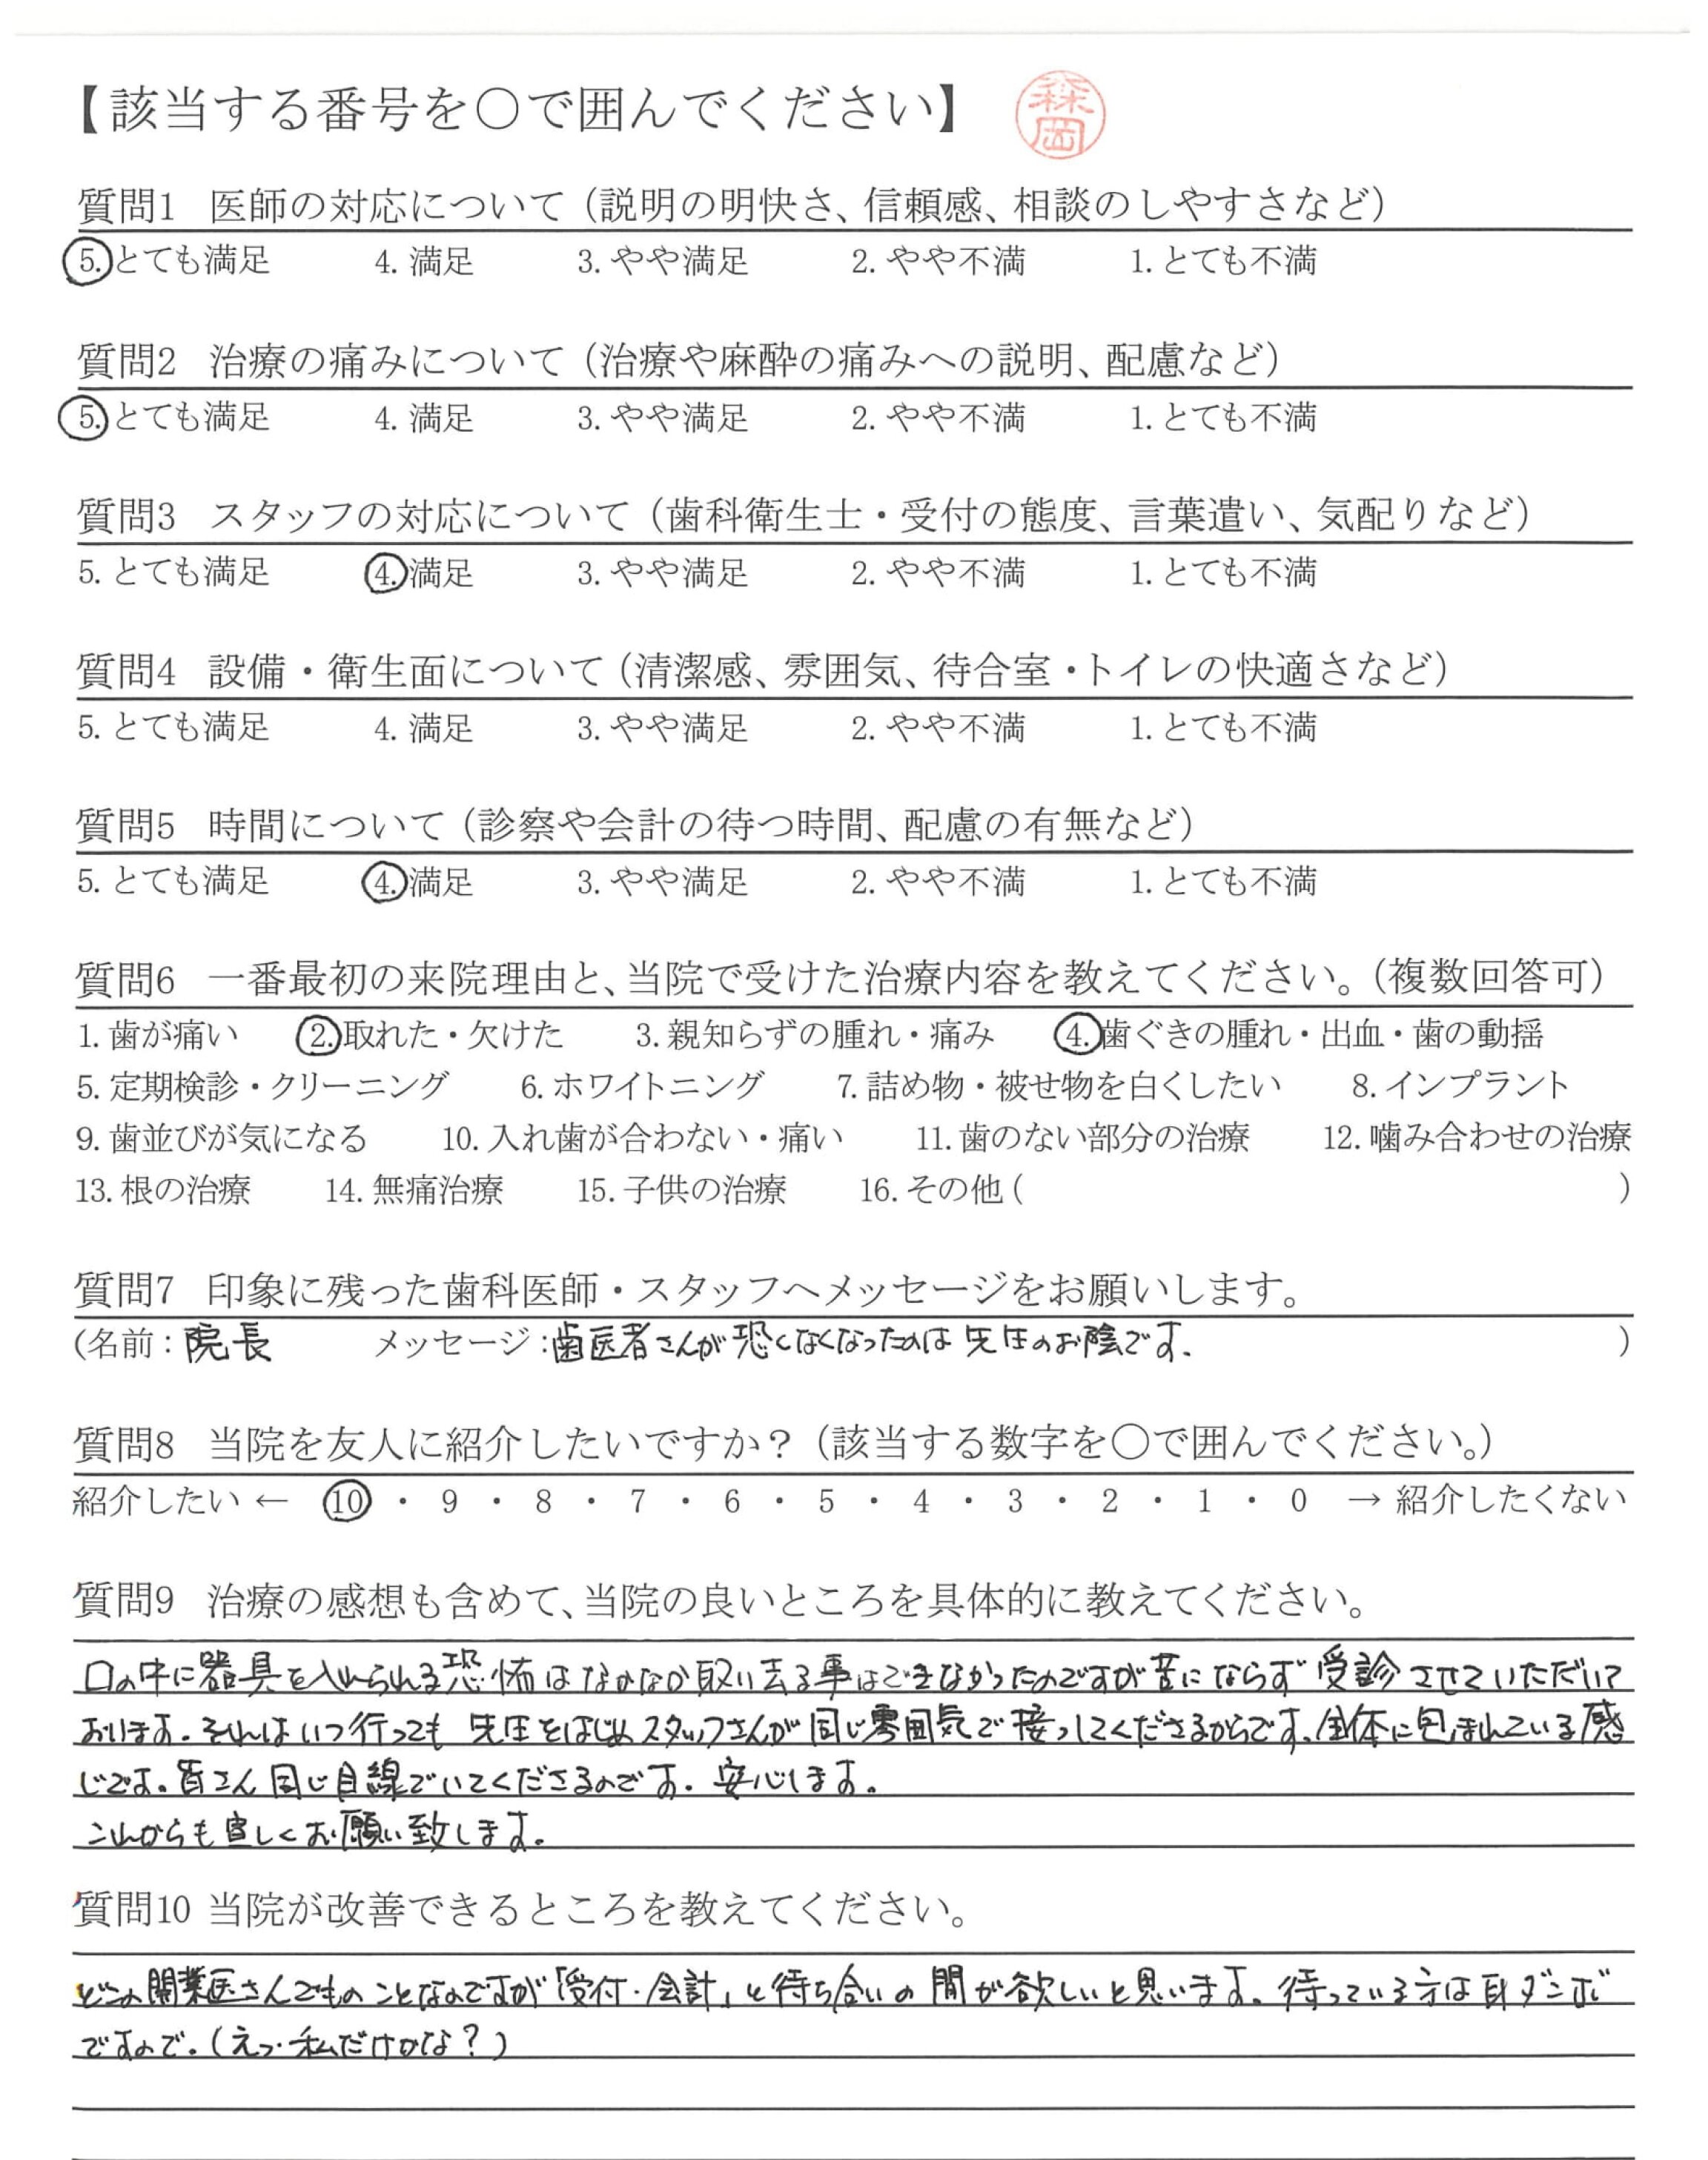 【該当する番号を○で囲んでください】
森岡
質問1 医師の対応について（説明の明快さ、信頼感、相談のしやすさなど）
5. とても満足 4. 満足 3. やや満足 2. やや不満 1. とても不満
質問2 治療の痛みについて（治療や麻酔の痛みへの説明、配慮など）
5. とても満足 4. 満足 3. やや満足 2. やや不満 1. とても不満
質問3 スタッフの対応について（歯科衛生士・受付の態度、言葉遣い、気配りなど）
5. とても満足 4. 満足 3. やや満足 2. やや不満 1. とても不満
質問4 設備・衛生面について（清潔感、雰囲気、待合室・トイレの快適さなど）
5. とても満足 4. 満足 3. やや満足 2. やや不満 1. とても不満
質問5 時間について（診察や会計の待つ時間、配慮の有無など）
5. とても満足 4. 満足 3. やや満足 2. やや不満 1. とても不満
質問6 一番最初の来院理由と、当院で受けた治療内容を教えてください。（複数回答可）
1. 歯が痛い 2. 取れた・欠けた 3. 親知らずの腫れ・痛み 4. 歯ぐきの腫れ・出血・歯の動揺
5. 定期検診・クリーニング 6. ホワイトニング 7. 詰め物・被せ物を白くしたい 8. インプラント
9. 歯並びが気になる 10. 入れ歯が合わない・痛い 11. 歯のない部分の治療 12. 噛み合わせの治療
13. 根の治療 14. 無痛治療 15. 子供の治療 16. その他（ ）
質問7 印象に残った歯科医師・スタッフへメッセージをお願いします。
（名前：院長 メッセージ：歯医者さんが恐くなくなったのは先生のお陰です. ）
質問8 当院を友人に紹介したいですか？（該当する数字を○で囲んでください。）
紹介したい ← 10 ・ 9 ・ 8 ・ 7 ・ 6 ・ 5 ・ 4 ・ 3 ・ 2 ・ 1 ・ 0 → 紹介したくない
質問9 治療の感想も含めて、当院の良いところを具体的に教えてください。
口の中に器具を入れられる恐怖はなかなか取り去る事はできなかったのですが苦にならず受診させていただいて
おります。それはいつ行っても先生をはじめスタッフさんが同じ雰囲気で接っしてくださるからです。全体に包まれている感
じです。皆さん同じ目線でいてくださるのです. 安心します。
これからも宜しくお願い致します。
質問10 当院が改善できるところを教えてください。
どこの開業医さんでものことなのですが「受付・会計」と待ち合いの間が欲しいと思います。待っている方は耳ダンボ
ですので.（えっ・私だけかな？）